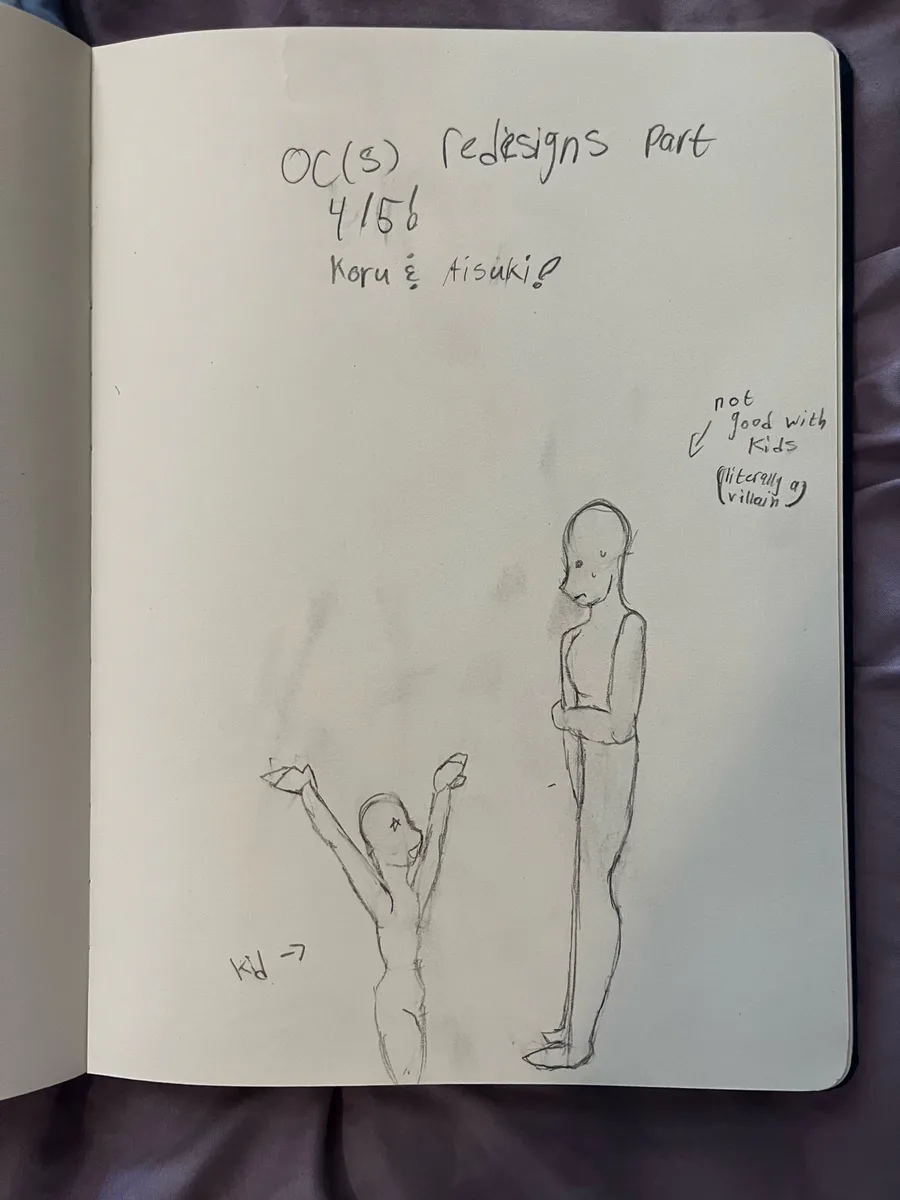 OC(s) redesigns Part
4/56
Koru & Aisuki!
not
good with
Kids
(literally a
villain)
Kid →